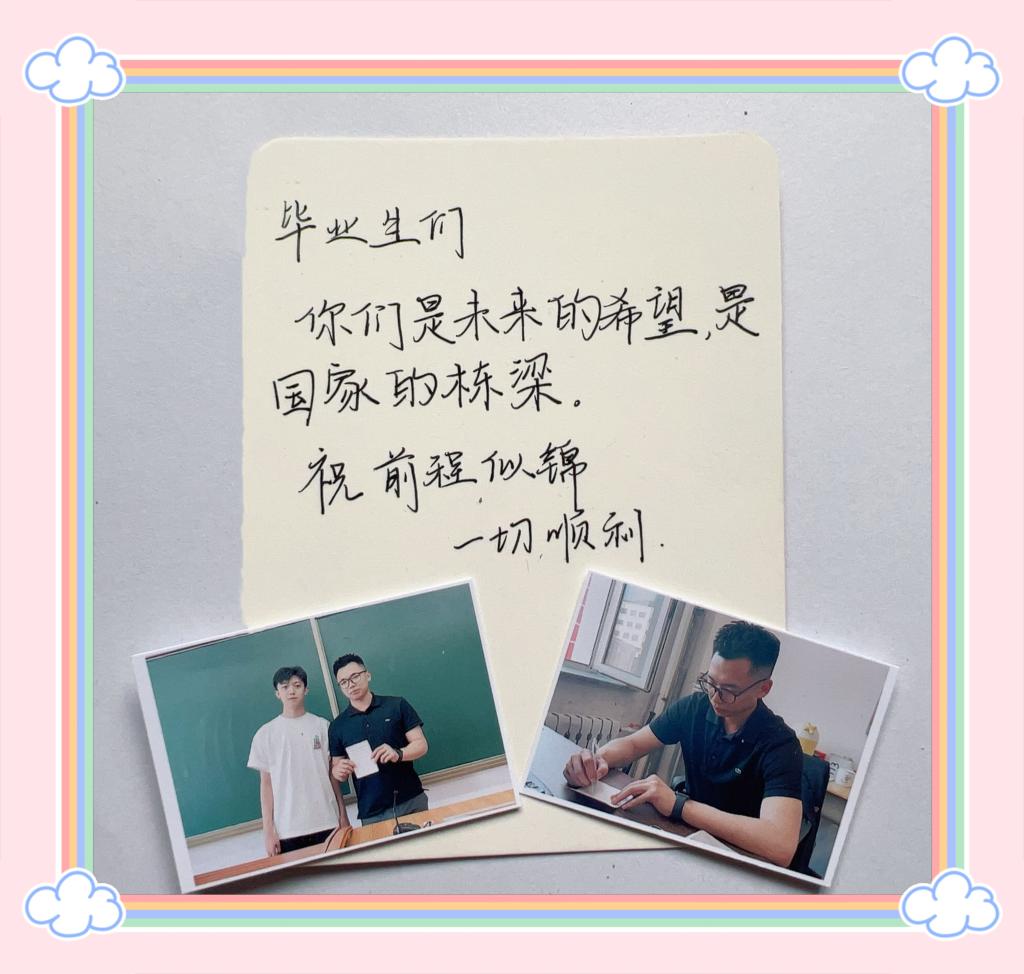 毕业生们
你们是未来的希望,是
国家的栋梁。
祝前程似锦
一切顺利.